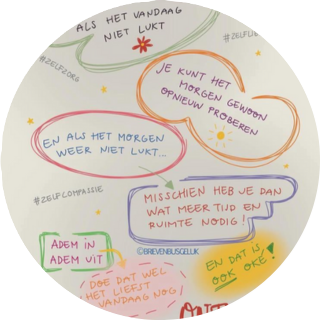 ALS HET VANDAAG
NIET LUKT
#ZELFZORG
JE KUNT HET
MORGEN GEWOON
OPNIEUW PROBEREN
EN ALS HET MORGEN
WEER NIET LUKT...
#ZELFCOMPASSIE
MISSCHIEN HEB JE DAN
WAT MEER TIJD EN
RUIMTE NODIG!
©BRIEVENBUSGELUK
ADEM IN
ADEM UIT
EN DAT IS
OOK OKÉ!
DOE DAT WEL
HET LIEFST
VANDAAG NOG